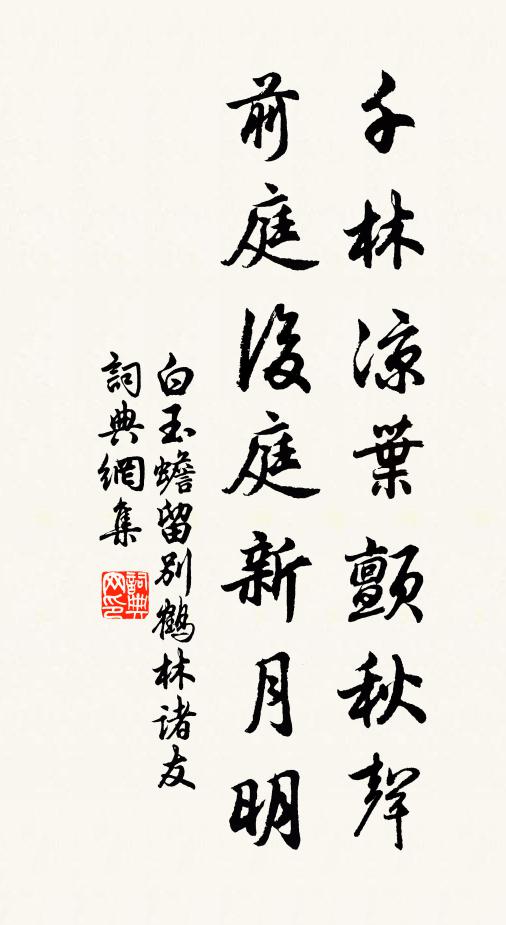 千林涼葉顫秋聲
前庭後庭新月明
白玉蟾留別鶴林諸友
詞典網集
詞典网印